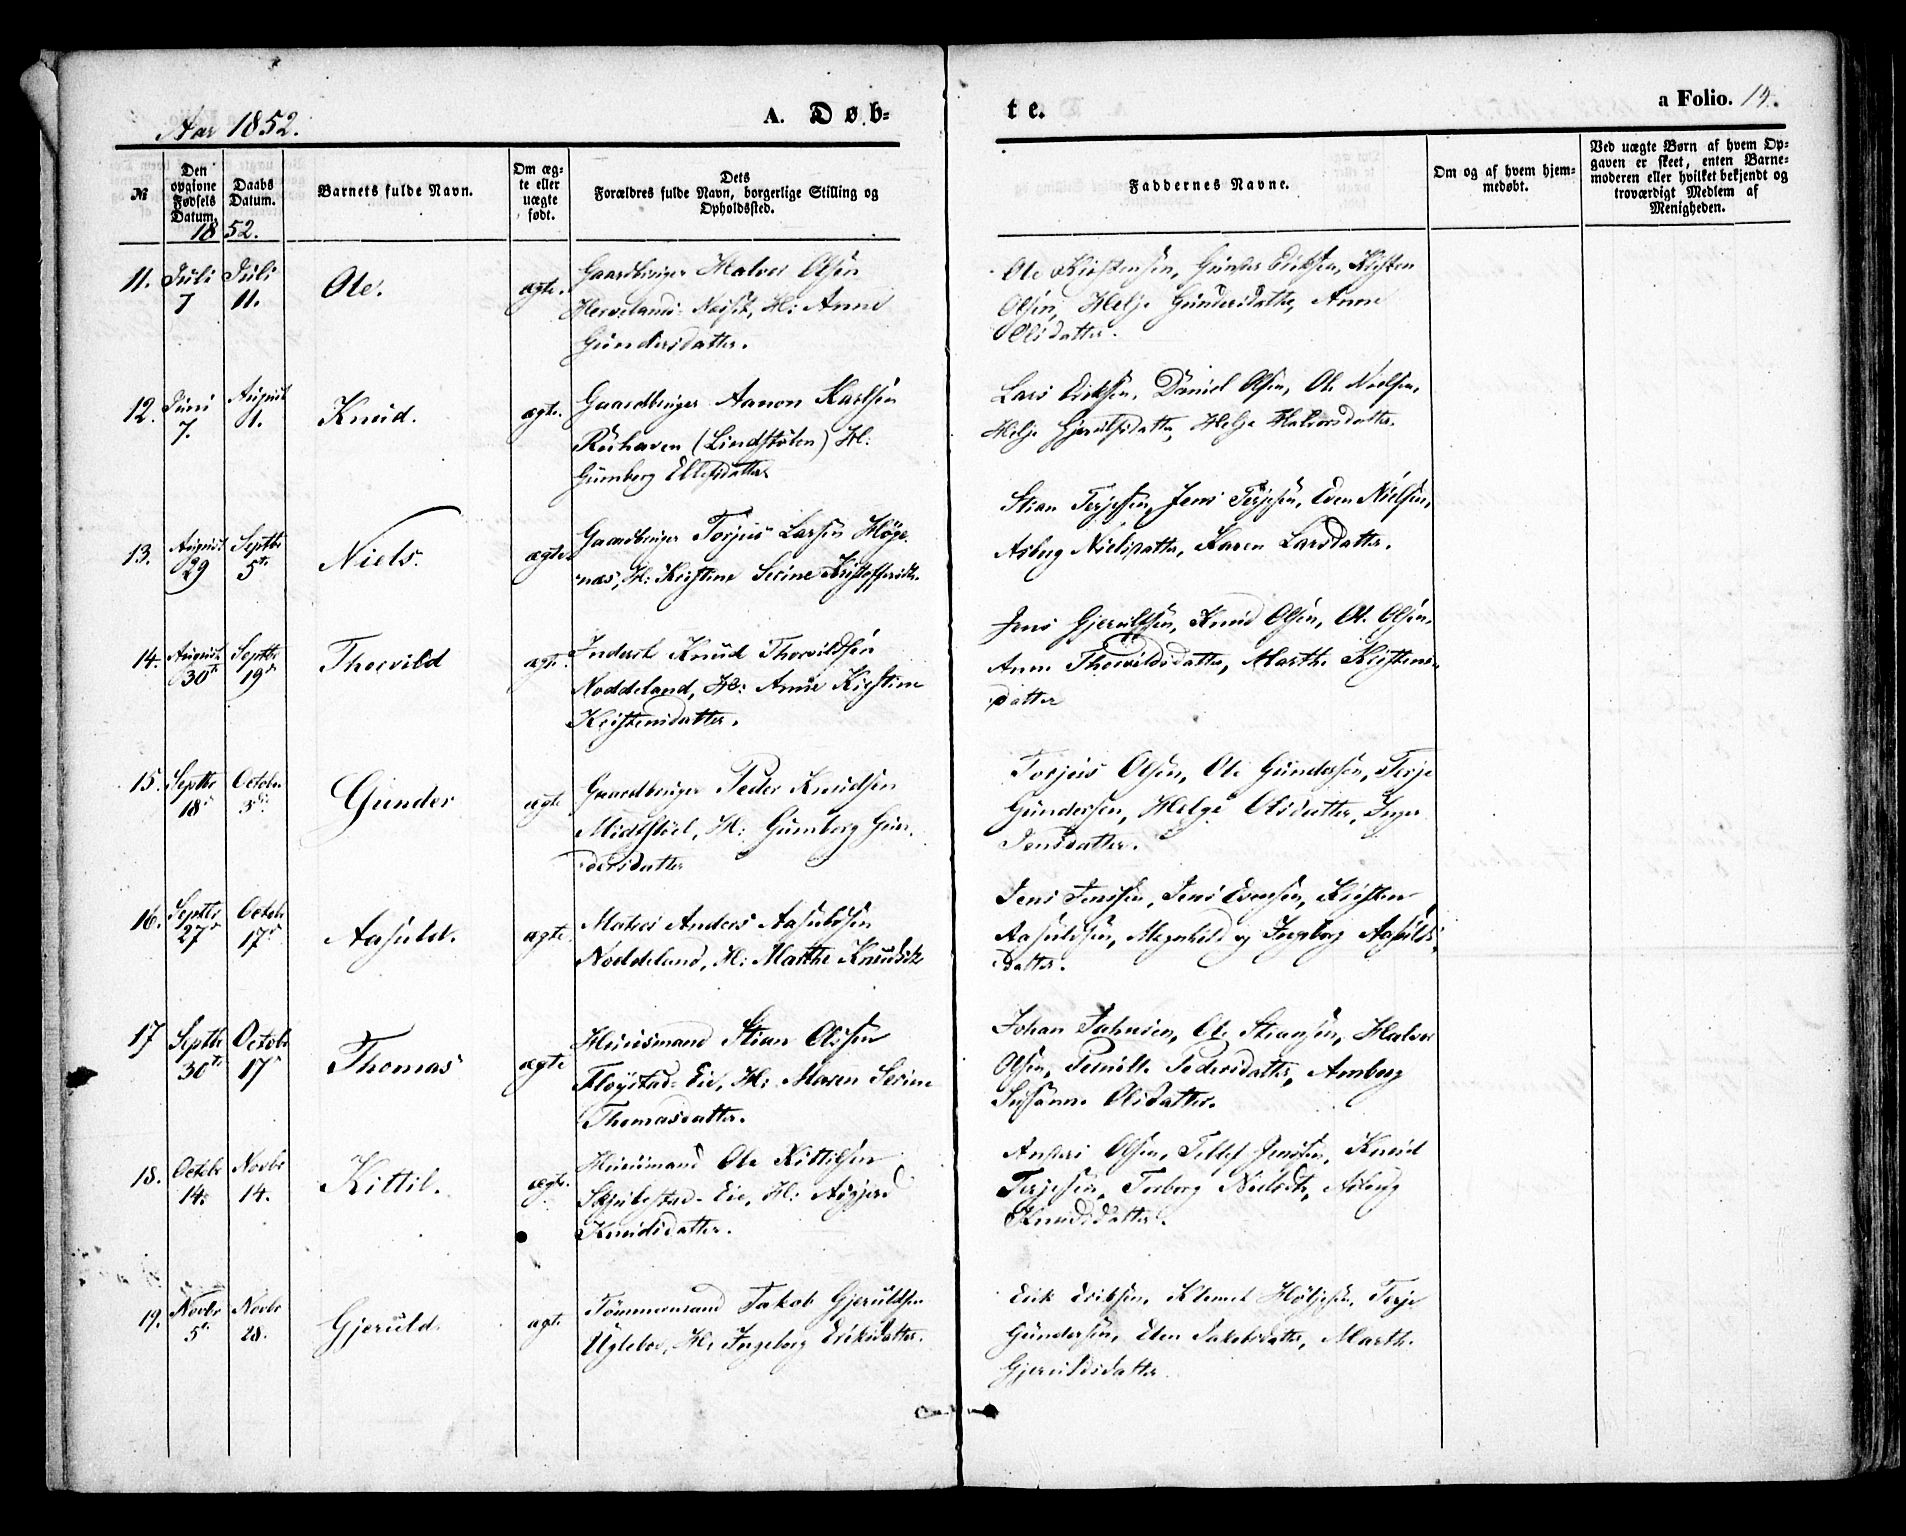 Aar 1852.
A. Døb-
te.
a Folio. 14.
№
Den opgivne Fødsels Datum.
Daabs Datum.
Barnets fulde Navn.
Om ægte eller uægte født.
Dets Forældres fulde Navn, borgerlige Stilling og Opholdssted.
Faddernes Navne.
Om og af hvem hjemmedøbt.
Ved uægte Børn af hvem Opgaven er skeet, enten Barnemoderen eller hvilket bekjendt og troværdigt Medlem af Menigheden.
1852.
11. Juli 7 Juli 11. Ole. ægte.
Gaardbruger Halvor Olsen
Nordst, H: Anne
Gundersdatter.
Ole Kirstensen, Gunder Eriksen, Kirsten
Olsen, Helje Gundersdatter, Anne
Olsdatter.
12. Juni 7. August 1. Knud. ægte.
Gaardbruger Aanon Karlsen
Røihaven (Lindstølen) H:
Gumborg Ellefsdatter
Lars Eriksen, Daniel Olsen, Ole Nielsen,
Helje Gjerulfsdatter, Helje Halvorsdatter.
13. August 29 Septbr 5te Niels. ægte
Gaardbruger Torjus Larsen Høge-
næs, H: Kirstine Serine Kristoffersdtr.
Stian Terjesen, Jens Terjesen, Even Nielsen,
Asberg Nielsdatter, Karen Larsdatter.
14. August 30te Septbr 19d Thorvild ægte.
Inderst Knud Thorvildsen
Noddeland, H: Anne Kirstine
Kristensdatter.
Jens Gjeruldsen, Knud Olsen, Ole Olsen,
Anne Thorvildsdatter, Marthe Kirstens-
datter
15. Septbr 18d October 3die Gunder ægte
Gaardbruger Peder Knudsen
Midtstøel, H: Gumborg Gun-
dersdatter
Torjus Olsen, Ole Gundersen, Terje
Gundersen, Helge Olsdatter, Inger
Jensdatter.
16. Septbr 27d Octobr 17d Aasuld. ægte.
Matros Anders Aasuldsen
Noddeland, H: Marthe Knudsdtr
Jens Jenssen, Jens Evensen, Kirsten
Aasuldsen, Magnhild og Ingeborg Aasulds-
datter.
17 Septbr 30te Octobr 17d Thomas ægte
Huusmand Stian Olssen
Fløystad-Eie, H: Maren Serine
Thomasdatter.
Johan Johnsen, Ole Stiansen, Halvor
Olsen, Pernille Pedersdatter, Amberg
Susanne Olsdatter.
18. Octobr 14. Novbr 14. Kittil. ægte.
Huusmand Ole Kittilsen
Skjulestad-Eie, H: Asgjerd
Knudsdatter.
Anders Olsen, Tellef Jensen, Knud
Terjesen, Torborg Nielsdtr, Asberg
Knudsdatter.
19. Novbr 5te Novbr 28. Gjeruld. ægte
Tømmermand Jakob Gjeruldsen
Uglebo, H: Ingeborg Eriksdatter.
Erik Eriksen, Klemet Høljesen, Terje
Gundersen, Elen Jakobsdatter, Marthe
Gjeruldsdatter